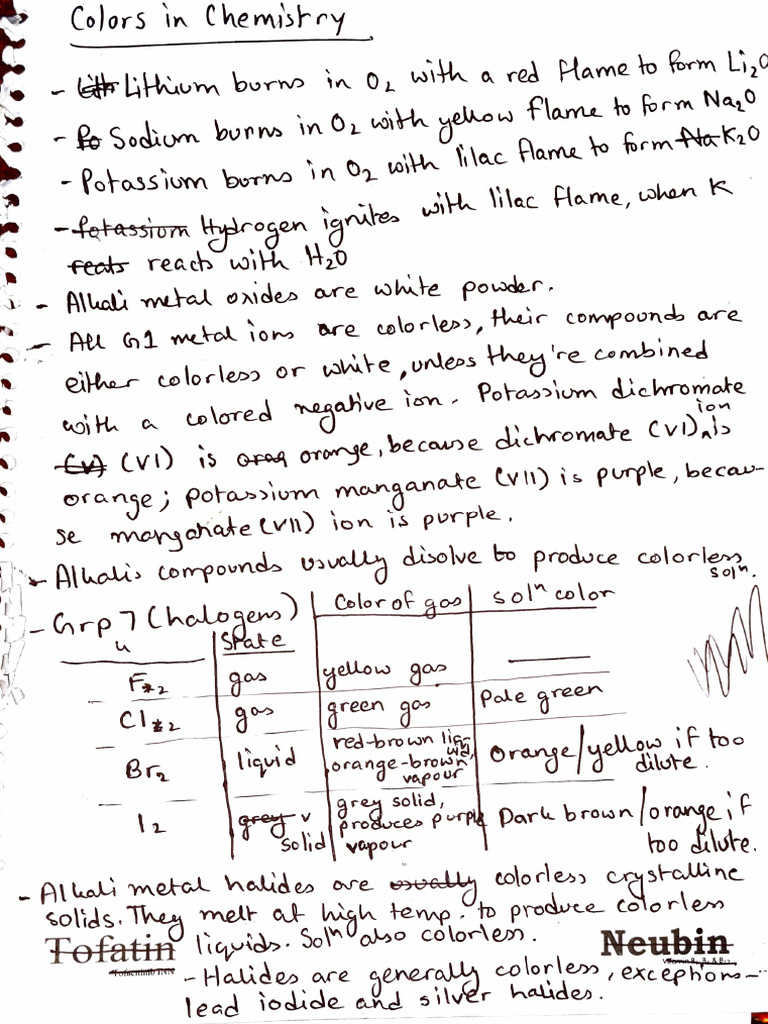 Colors in Chemistry
- Lith Lithium burns in O2 with a red flame to form Li2O
- Po Sodium burns in O2 with yellow flame to form Na2O
- Potassium burns in O2 with lilac flame to form Na K2O
- Potassium Hydrogen ignites with lilac flame, when K
reats reacts with H2O
- Alkali metal oxides are white powder.
- All G1 metal ions are colorless, their compounds are
either colorless or white, unless they're combined
with a colored negative ion. Potassium dichromate
(V) (VI) is orang orange, because dichromate (VI) ion is
orange; potassium manganate (VII) is purple, becau-
se manganate (VII) ion is purple.
- Alkalis compounds usually disolve to produce colorless
soln.
- Grp 7 (halogens) | State | Color of gas | soln color
F2 | gas | yellow gas | —
Cl2 | gas | green gas | Pale green
Br2 | liquid | red-brown liquid, orange-brown vapour | Orange/yellow if too dilute.
I2 | grey solid | grey solid, produces purple vapour | Dark brown/orange if too dilute.
- Alkali metal halides are usually colorless crystalline
solids. They melt at high temp. to produce colorless
Tofatin liquids. Soln also colorless. Neubin
- Halides are generally colorless, exceptions-
lead iodide and silver halides.